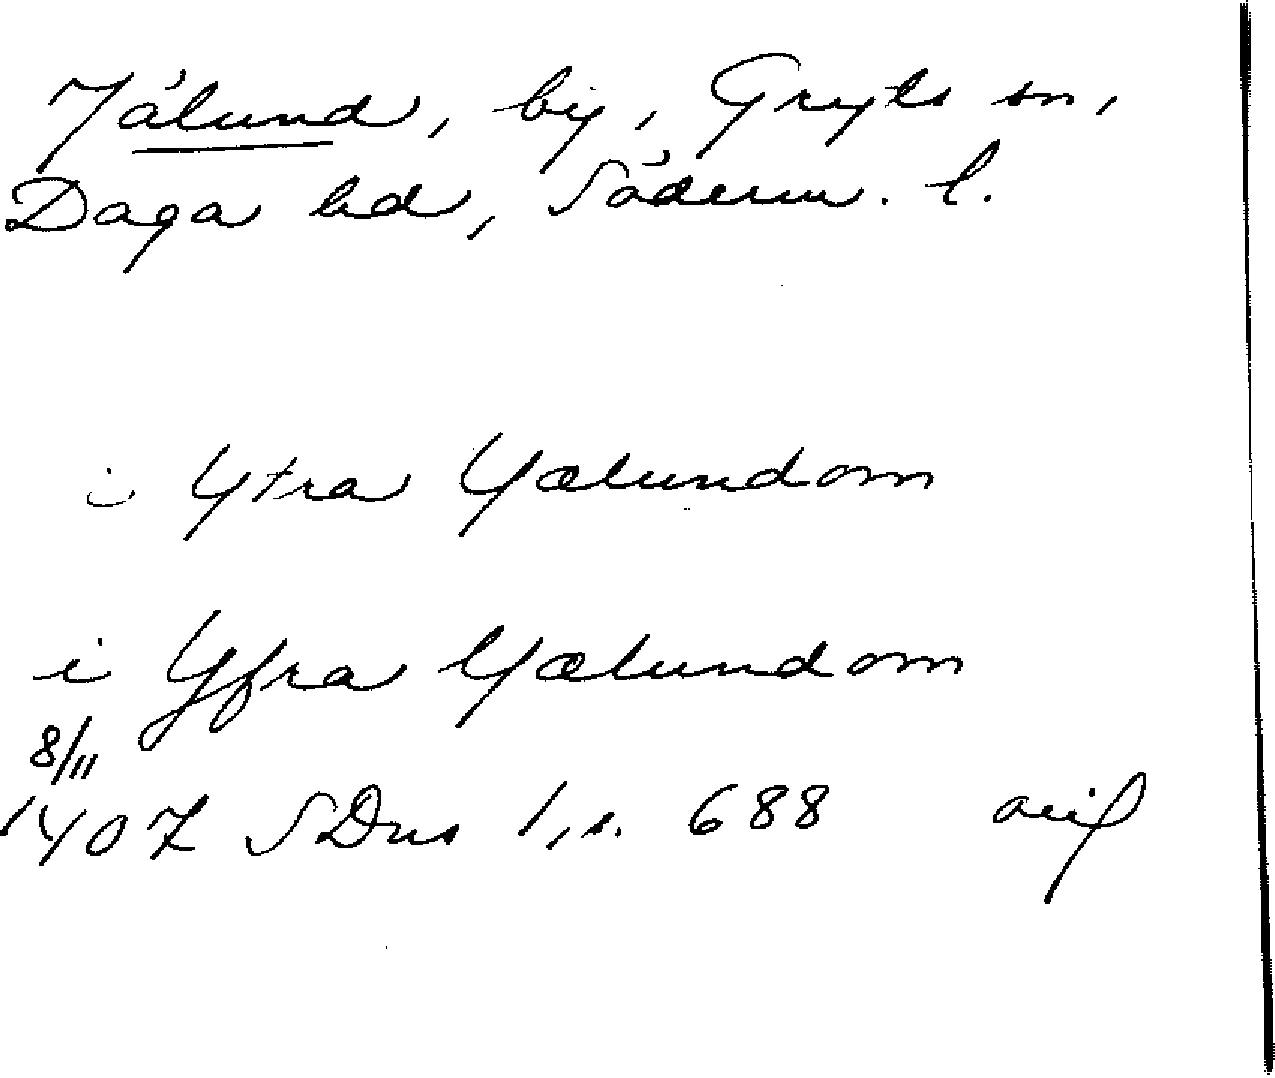 Jälund, by, Gryts sn,
Daga hd, Söderm. l.
i Ytra Yælundom
i Yfra Yælundom
8/11
1407 SDns 1, s. 688 avif